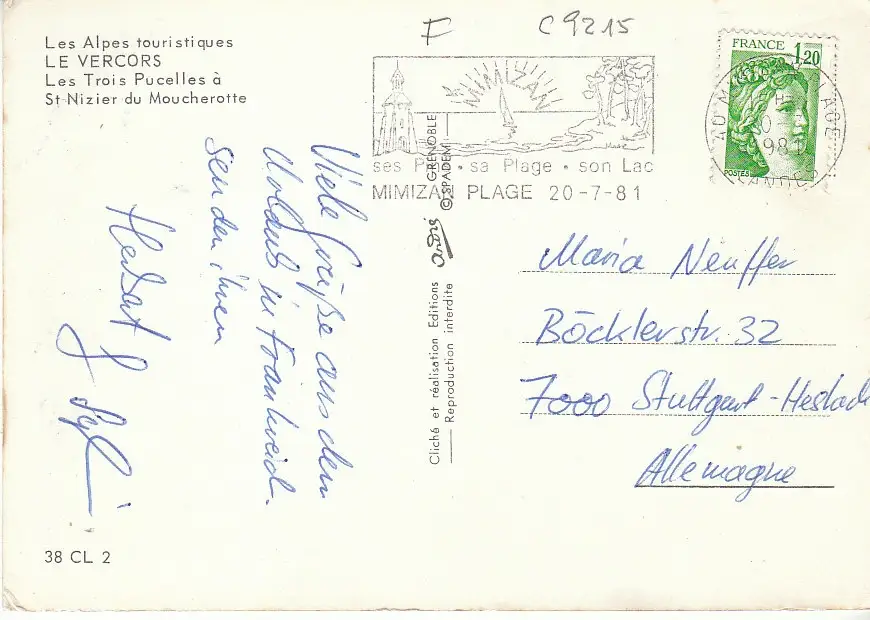 F C9215
Les Alpes touristiques
LE VERCORS
Les Trois Pucelles à
St-Nizier du Moucherotte
MIMIZAN
ses P · sa Plage · son Lac
MIMIZAN PLAGE 20-7-81
FRANCE 1,20
POSTES
PLAGE
1981
LANDES
Viele Grüße aus dem
Urlaub in Frankreich
senden ihnen
Herbert
Cliché et réalisation Editions André GRENOBLE
Reproduction interdite ©SPADEM
Maria Neuffer
Böcklerstr. 32
7000 Stuttgart-Heslach
Allemagne
38 CL 2